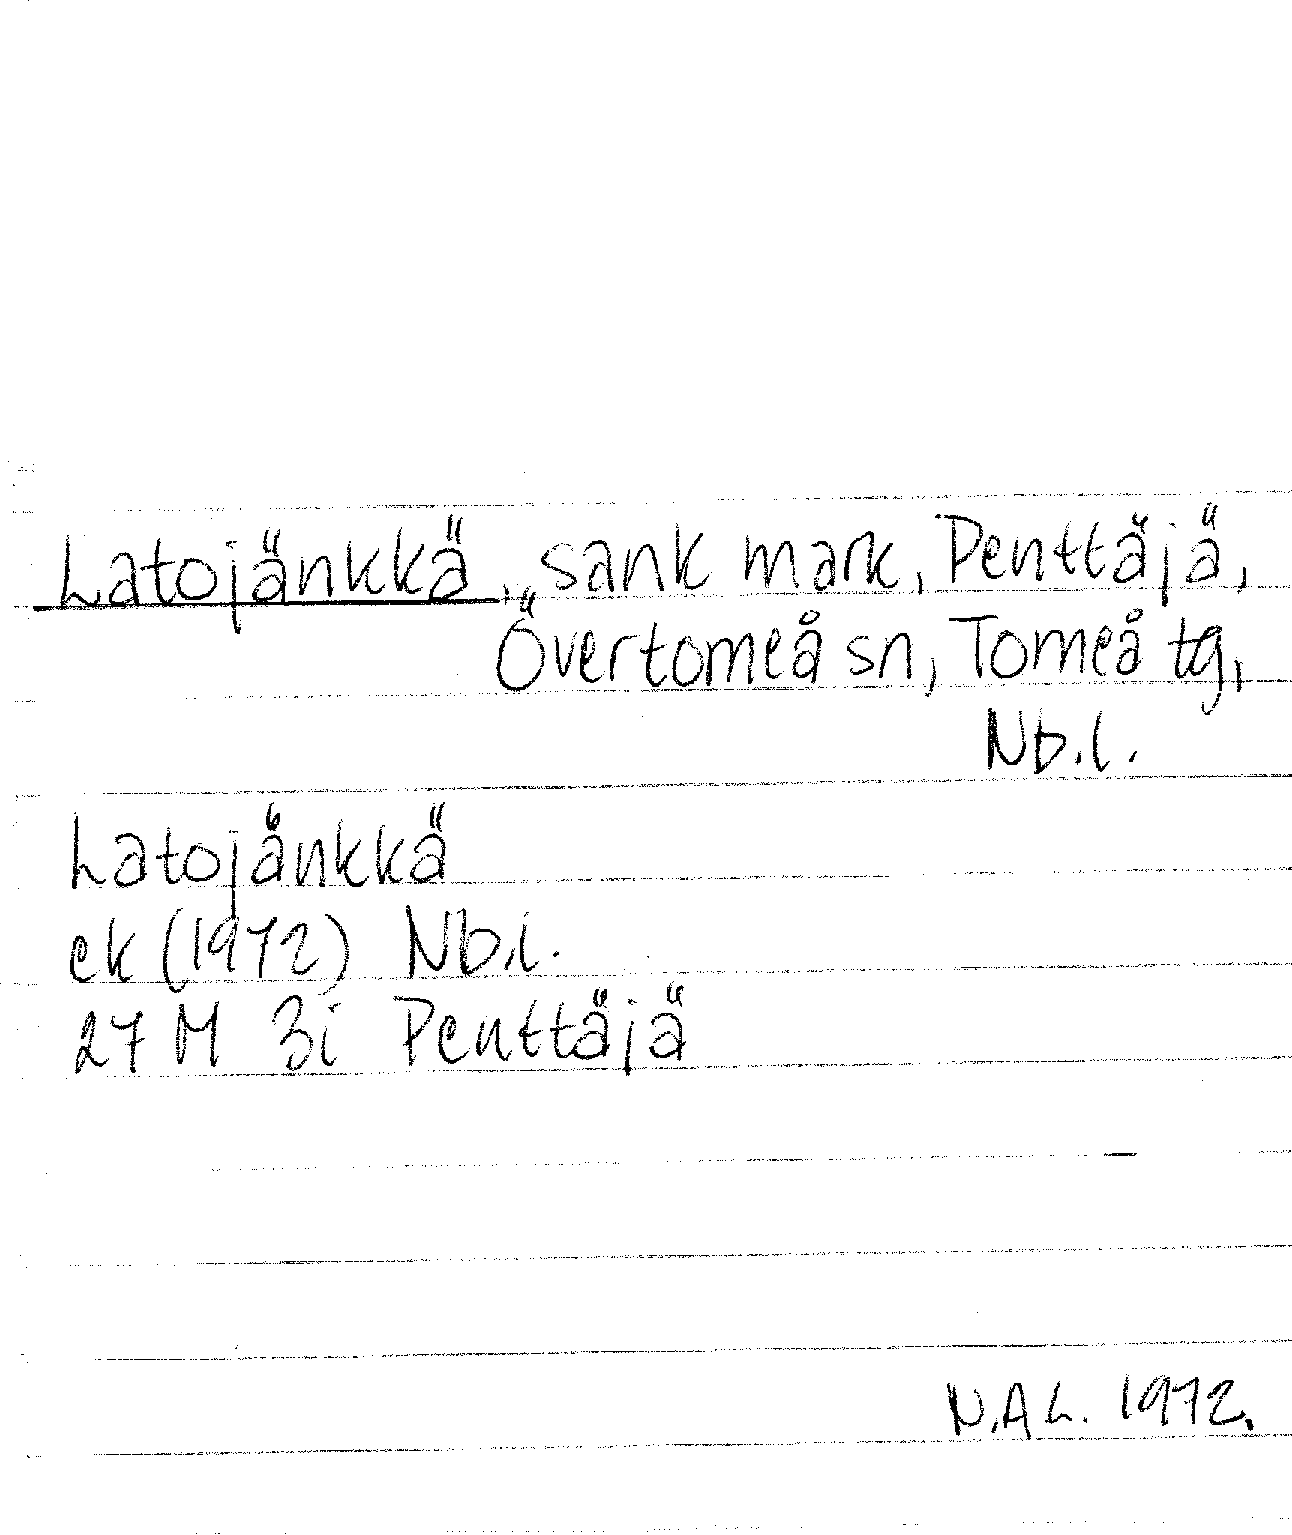 Latojänkkä, sank mark, Penttäjä,
Övertorneå sn, Torneå tg,
Nb.l.
Latojänkkä
ek (1972) Nb.l.
27 M 3i Penttäjä
N.A L. 1972.